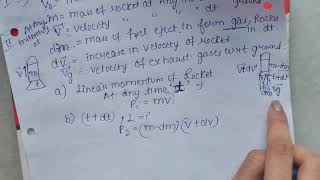 m = mass of rocket at any
V = velocity " " "
dm = mass of fuel eject in form gas, Rocket in dt.
dv = increase in velocity of rocket
Vg = velocity of exhaust gases w.r.t ground
a) Linear momentum of rocket
At any time 't' ⇒
P₁ = mv
b) (t+dt) , 2 = ?
P₂ = (m-dm) (v+dv)
V+dv
t+dt
Vg